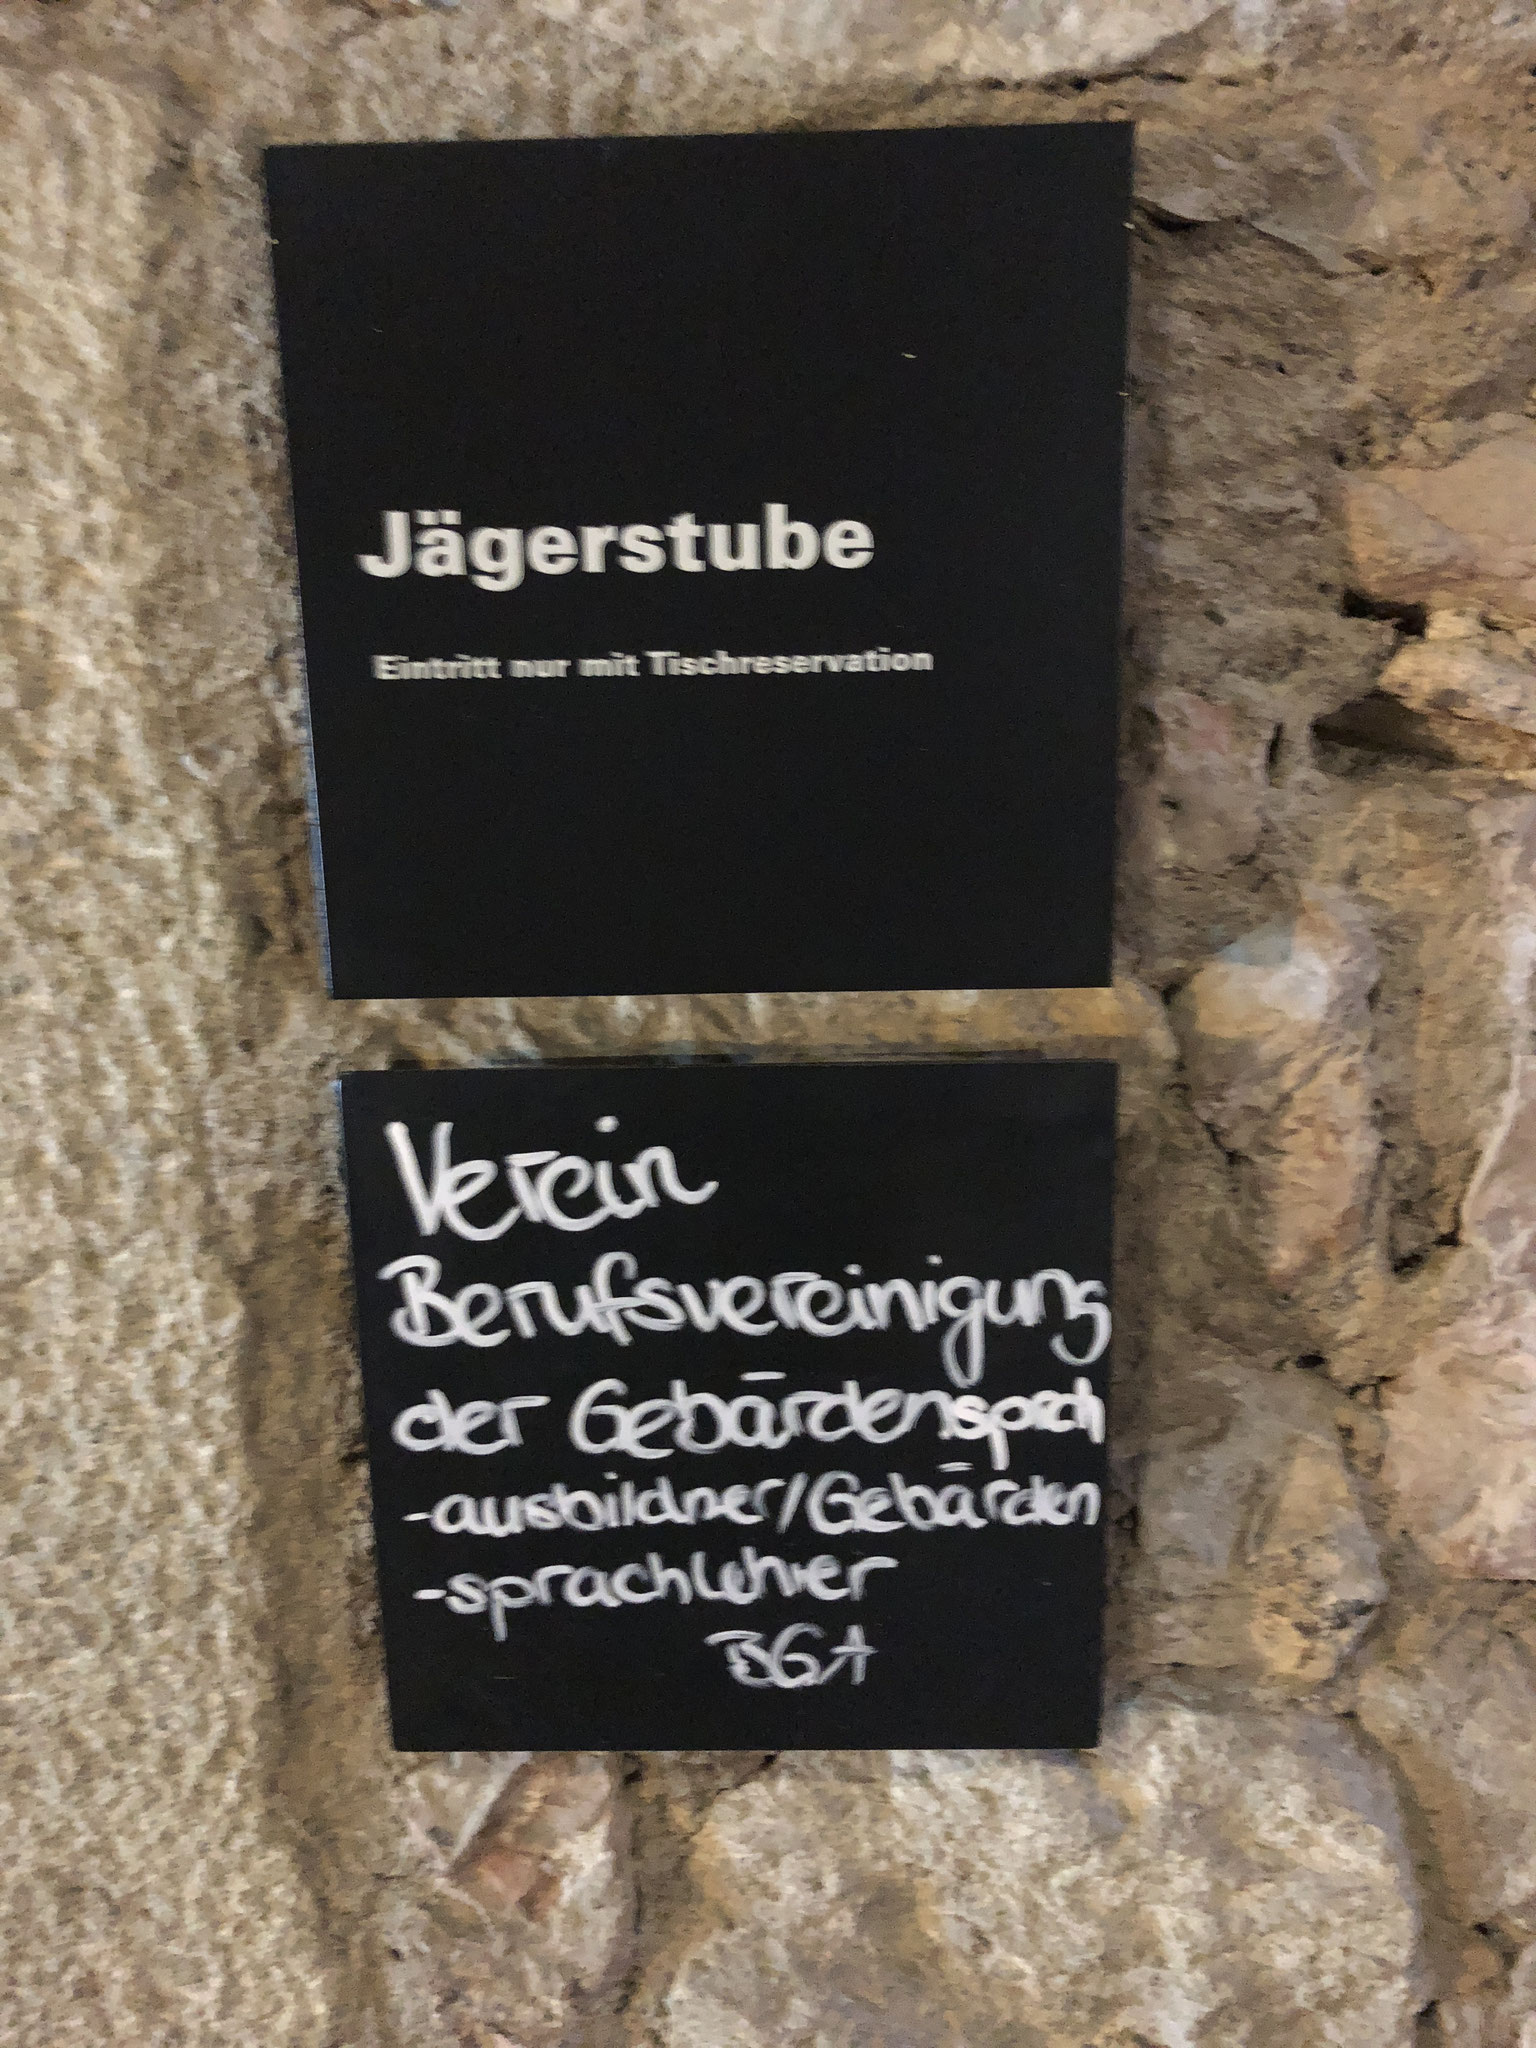 Jägerstube
Eintritt nur mit Tischreservation
Verein
Berufsvereinigung
der Gebārdensprach
-ausbildner/Gebārden
-sprachlehrer
BGA